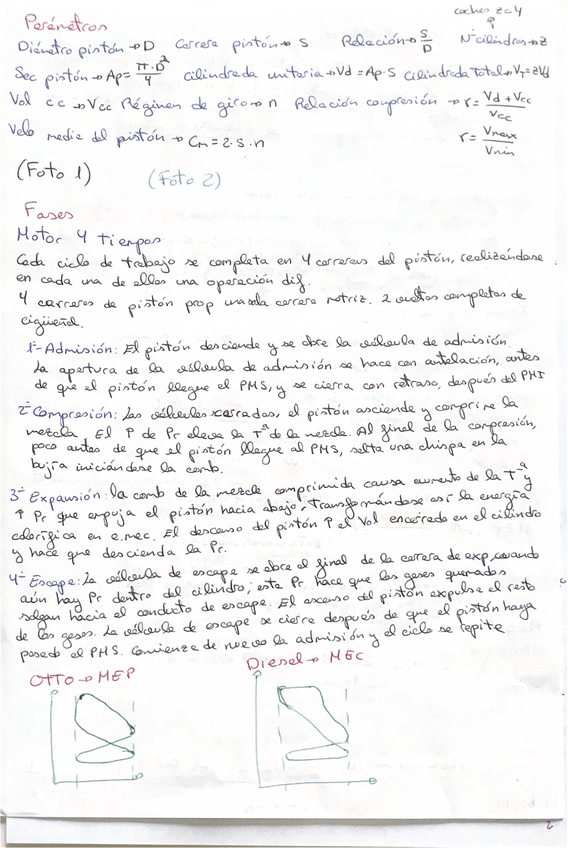 coches z=4
Parámetros
Diámetro pistón → D Carrera pistón → S Relación → S/D Nº cilindros → z
Sec pistón → Ap = π·D²/4 cilindrada unitaria → Vd = Ap·S cilindrada Total → VT = zVd
Vol cc → Vcc Régimen de giro → n Relación compresión → r = (Vd + Vcc)/Vcc
Velo media del pistón → Cm = 2·S·n r = Vmax/Vmin
(Foto 1) (Foto 2)
Fases
Motor 4 tiempos
Cada ciclo de trabajo se completa en 4 carreras del pistón, realizándose
en cada una de ellas una operación dif.
4 carreras de pistón prop una sola carrera motriz. 2 vueltas completas de
cigüeñal.
1º- Admisión: El pistón desciende y se abre la válvula de admisión.
La apertura de la válvula de admisión se hace con antelación, antes
de que el pistón llegue al PMS, y se cierra con retraso, después del PMI
2º- Compresión: Las válvulas cerradas, el pistón asciende y comprime la
mezcla. El ↑ de Pr eleva la Tª de la mezcla. Al final de la compresión,
poco antes de que el pistón llegue al PMS, salta una chispa en la
bujía iniciándose la comb.
3º- Expansión: la comb de la mezcla comprimida causa aumento de la Tª y
↑ Pr que empuja el pistón hacia abajo, transformándose así la energía
calorífica en e.mec. El descenso del pistón ↑ el Vol encerrado en el cilindro
y hace que descienda la Pr.
4º- Escape: La válvula de escape se abre al final de la carrera de exp, cuando
aún hay Pr dentro del cilindro; esta Pr hace que los gases quemados
salgan hacia el conducto de escape. El ascenso del pistón expulsa el resto
de los gases. La válvula de escape se cierra después de que el pistón haya
pasado el PMS. Comienza de nuevo la admisión y el ciclo se repite
OTTO → MEP Diesel → MEC
2